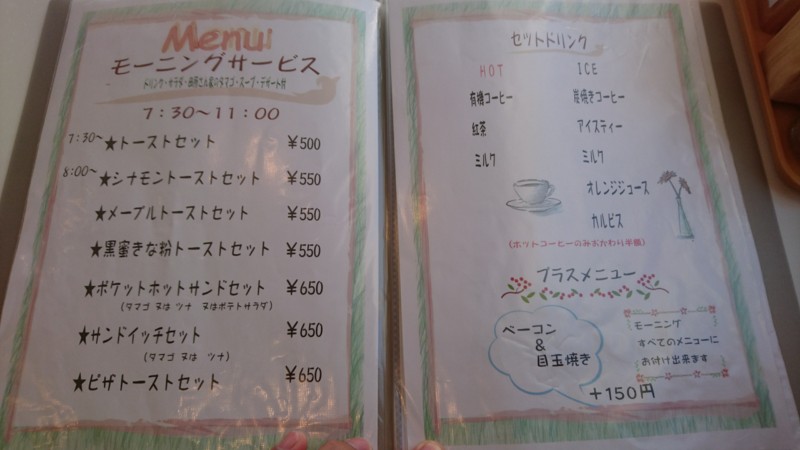 Menu
モーニングサービス
ドリンク・サラダ・田原さん家のタマゴ・スープ・デザート付
7:30～11:00
7:30～ ★トーストセット ￥500
8:00～ ★シナモントーストセット ￥550
★メープルトーストセット ￥550
★黒蜜きな粉トーストセット ￥550
★ポケットホットサンドセット ￥650
(タマゴ 又は ツナ 又はポテトサラダ)
★サンドイッチセット ￥650
(タマゴ 又は ツナ)
★ピザトーストセット ￥650
セットドリンク
HOT ICE
有機コーヒー 炭焼きコーヒー
紅茶 アイスティー
ミルク ミルク
オレンジジュース
カルピス
(ホットコーヒーのみおかわり半額)
プラスメニュー
ベーコン
&
目玉焼き
モーニング
すべてのメニューに
お付け出来ます
+150円